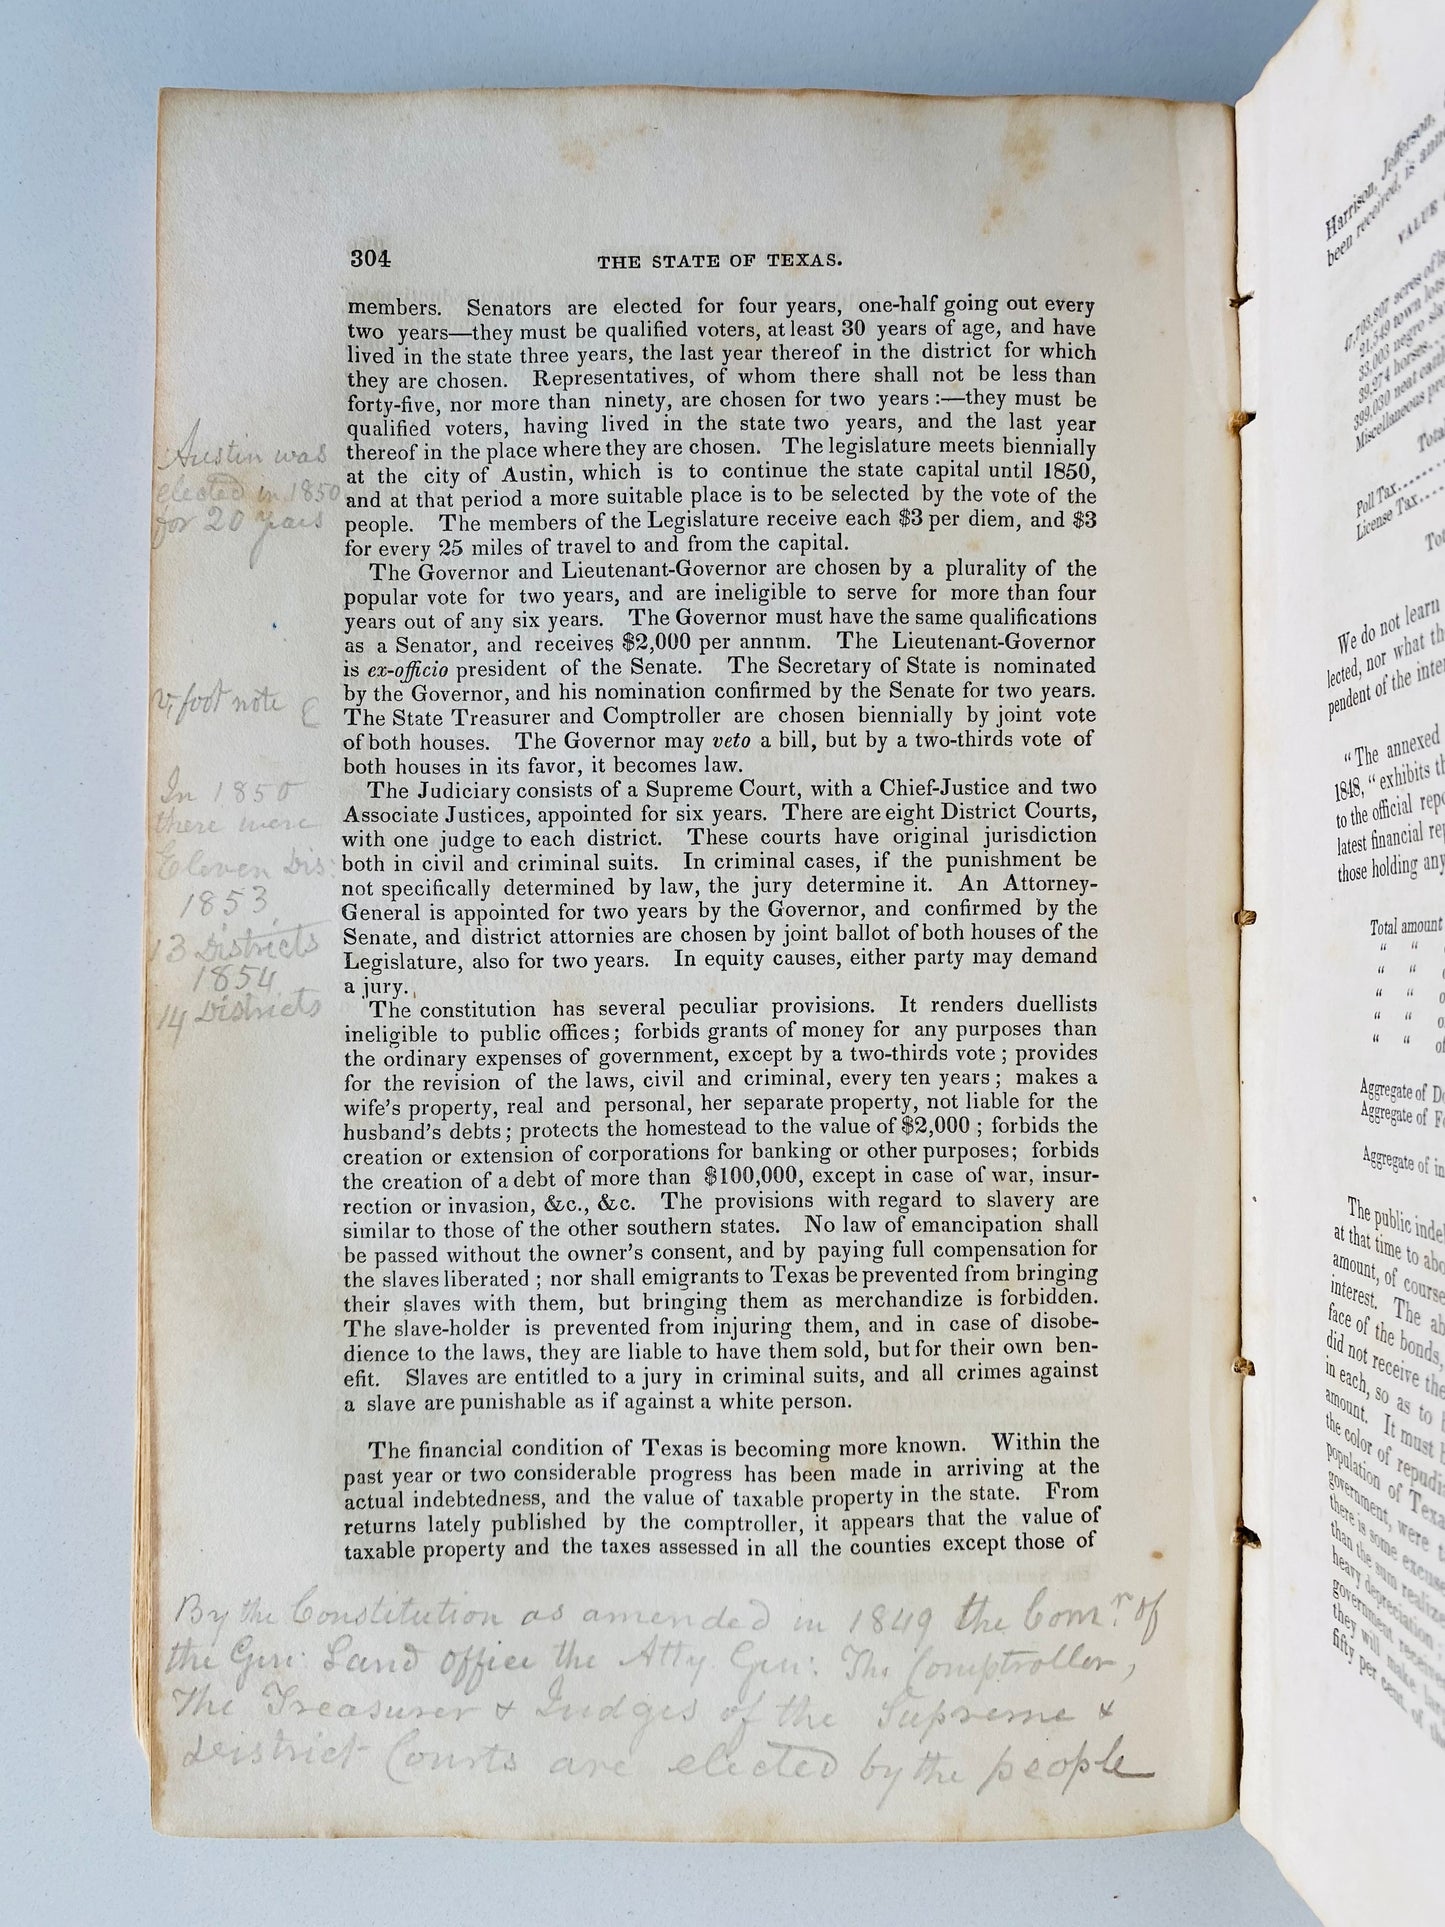 304
THE STATE OF TEXAS.
members. Senators are elected for four years, one-half going out every
two years—they must be qualified voters, at least 30 years of age, and have
lived in the state three years, the last year thereof in the district for which
they are chosen. Representatives, of whom there shall not be less than
forty-five, nor more than ninety, are chosen for two years :—they must be
qualified voters, having lived in the state two years, and the last year
thereof in the place where they are chosen. The legislature meets biennially
at the city of Austin, which is to continue the state capital until 1850,
and at that period a more suitable place is to be selected by the vote of the
people. The members of the Legislature receive each $3 per diem, and $3
for every 25 miles of travel to and from the capital.
The Governor and Lieutenant-Governor are chosen by a plurality of the
popular vote for two years, and are ineligible to serve for more than four
years out of any six years. The Governor must have the same qualifications
as a Senator, and receives $2,000 per annnm. The Lieutenant-Governor
is ex-officio president of the Senate. The Secretary of State is nominated
by the Governor, and his nomination confirmed by the Senate for two years.
The State Treasurer and Comptroller are chosen biennially by joint vote
of both houses. The Governor may veto a bill, but by a two-thirds vote of
both houses in its favor, it becomes law.
The Judiciary consists of a Supreme Court, with a Chief-Justice and two
Associate Justices, appointed for six years. There are eight District Courts,
with one judge to each district. These courts have original jurisdiction
both in civil and criminal suits. In criminal cases, if the punishment be
not specifically determined by law, the jury determine it. An Attorney-
General is appointed for two years by the Governor, and confirmed by the
Senate, and district attornies are chosen by joint ballot of both houses of the
Legislature, also for two years. In equity causes, either party may demand
a jury.
The constitution has several peculiar provisions. It renders duellists
ineligible to public offices; forbids grants of money for any purposes than
the ordinary expenses of government, except by a two-thirds vote ; provides
for the revision of the laws, civil and criminal, every ten years ; makes a
wife's property, real and personal, her separate property, not liable for the
husband's debts ; protects the homestead to the value of $2,000 ; forbids the
creation or extension of corporations for banking or other purposes; forbids
the creation of a debt of more than $100,000, except in case of war, insur-
rection or invasion, &c., &c. The provisions with regard to slavery are
similar to those of the other southern states. No law of emancipation shall
be passed without the owner's consent, and by paying full compensation for
the slaves liberated ; nor shall emigrants to Texas be prevented from bringing
their slaves with them, but bringing them as merchandize is forbidden.
The slave-holder is prevented from injuring them, and in case of disobe-
dience to the laws, they are liable to have them sold, but for their own ben-
efit. Slaves are entitled to a jury in criminal suits, and all crimes against
a slave are punishable as if against a white person.
The financial condition of Texas is becoming more known. Within the
past year or two considerable progress has been made in arriving at the
actual indebtedness, and the value of taxable property in the state. From
returns lately published by the comptroller, it appears that the value of
taxable property and the taxes assessed in all the counties except those of
Austin was
elected in 1850
for 20 years
v. foot note
In 1850
there were
Eleven Dis:
1853
13 Districts
1854
14 Districts
By the Constitution as amended in 1849 the Comr. of
the Gen: Land office the Atty Gen: The Comptroller,
The Treasurer & Judges of the Supreme &
District Courts are elected by the people
Harrison, Jefferson,
been received, is
VALUE
47,703,807 acres of
21,549 town lots
33,003 negro
39,274 horses
399,030 neat
Miscellaneous
Poll Tax
License Tax
We do not learn
lected, nor what
pendent of the
"The annexed
1848," exhibits
to the official
latest financial
those holding any
Total amount
" "
" "
" "
" "
" "
Aggregate of
Aggregate of
Aggregate of
The public
at that time to
amount, of course
interest. The
face of the bonds,
did not receive the
in each, so as to
amount. It must
the color of
population of
government, were
there is some
than the sum
heavy depreciation
government
they will make
fifty per cent. of